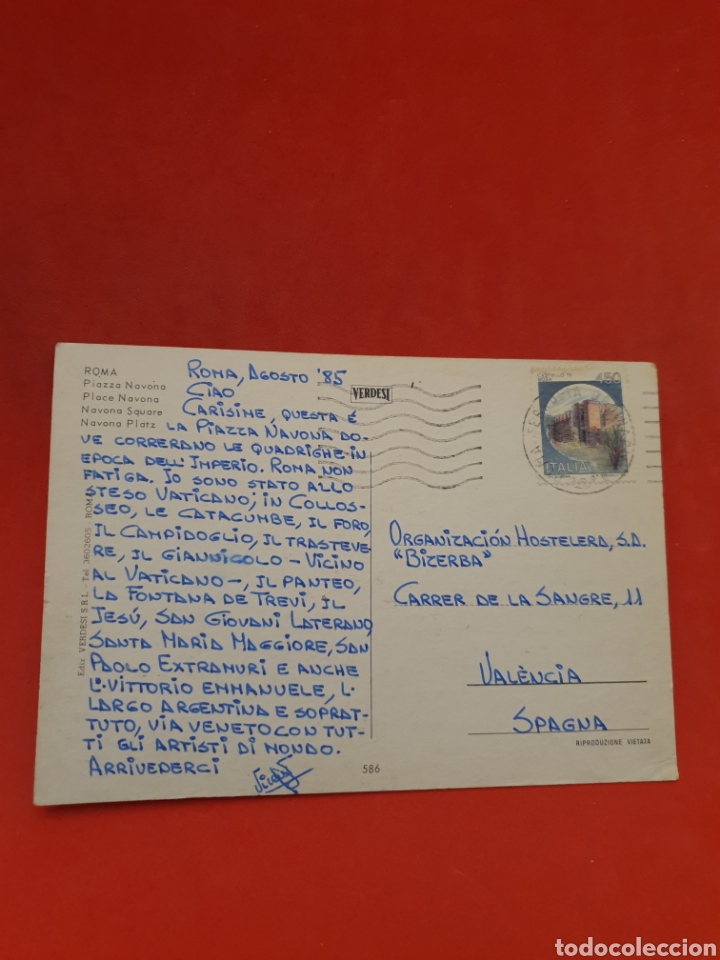 ROMA
Piazza Navona
Place Navona
Navona Square
Navona Platz
ROMA, AGOSTO '85
CIAO
CARISINE, QUESTA É
LA PIAZZA NAVONA DO-
VE CORRERDNO LE QUADRIGHE IN
EPOCA DELL'IMPERIO. ROMA NON
FATIGA. IO SONO STATO ALLO
STESO VATICANO, IN COLLOS-
SEO, LE CATACUMBE, IL FORO,
IL CAMPIDOGLIO, IL TRASTEVE
RE, IL GIANNICOLO - VICINO
AL VATICANO -, IL PANTEO,
LA FONTANA DE TREVI, IL
JESÚ, SAN GIOVANI LATERANO,
SANTA MARIA MAGGIORE, SAN
PAOLO EXTRAMURI E ANCHE
L'VITTORIO EMMANUELE, L'
LARGO ARGENTINA E SOPRAT-
TUTO, VIA VENETO CON TUT-
TI GLI ARTISTI DI MONDO.
ARRIVEDERCI
Ediz. VERDESI S.R.L. - Tel. 3602605 - ROMA
VERDESI
586
CASTELLO DI
450
ITALIA
ORGANIZACIÓN HOSTELERA, S.A.
"BIZERBA"
CARRER DE LA SANGRE, 11
VALÈNCIA
SPAGNA
RIPRODUZIONE VIETATA
todocoleccion